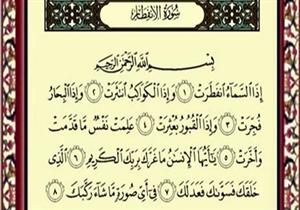 سورة الانفطار
بِسْمِ اللَّهِ الرَّحْمَٰنِ الرَّحِيمِ
إِذَا السَّمَاءُ انفَطَرَتْ ١ وَإِذَا الْكَوَاكِبُ انتَثَرَتْ ٢ وَإِذَا الْبِحَارُ
فُجِّرَتْ ٣ وَإِذَا الْقُبُورُ بُعْثِرَتْ ٤ عَلِمَتْ نَفْسٌ مَّا قَدَّمَتْ
وَأَخَّرَتْ ٥ يَٰأَيُّهَا الْإِنسَٰنُ مَا غَرَّكَ بِرَبِّكَ الْكَرِيمِ ٦ الَّذِي
خَلَقَكَ فَسَوَّىٰكَ فَعَدَلَكَ ٧ فِي أَيِّ صُورَةٍ مَّا شَاءَ رَكَّبَكَ ٨